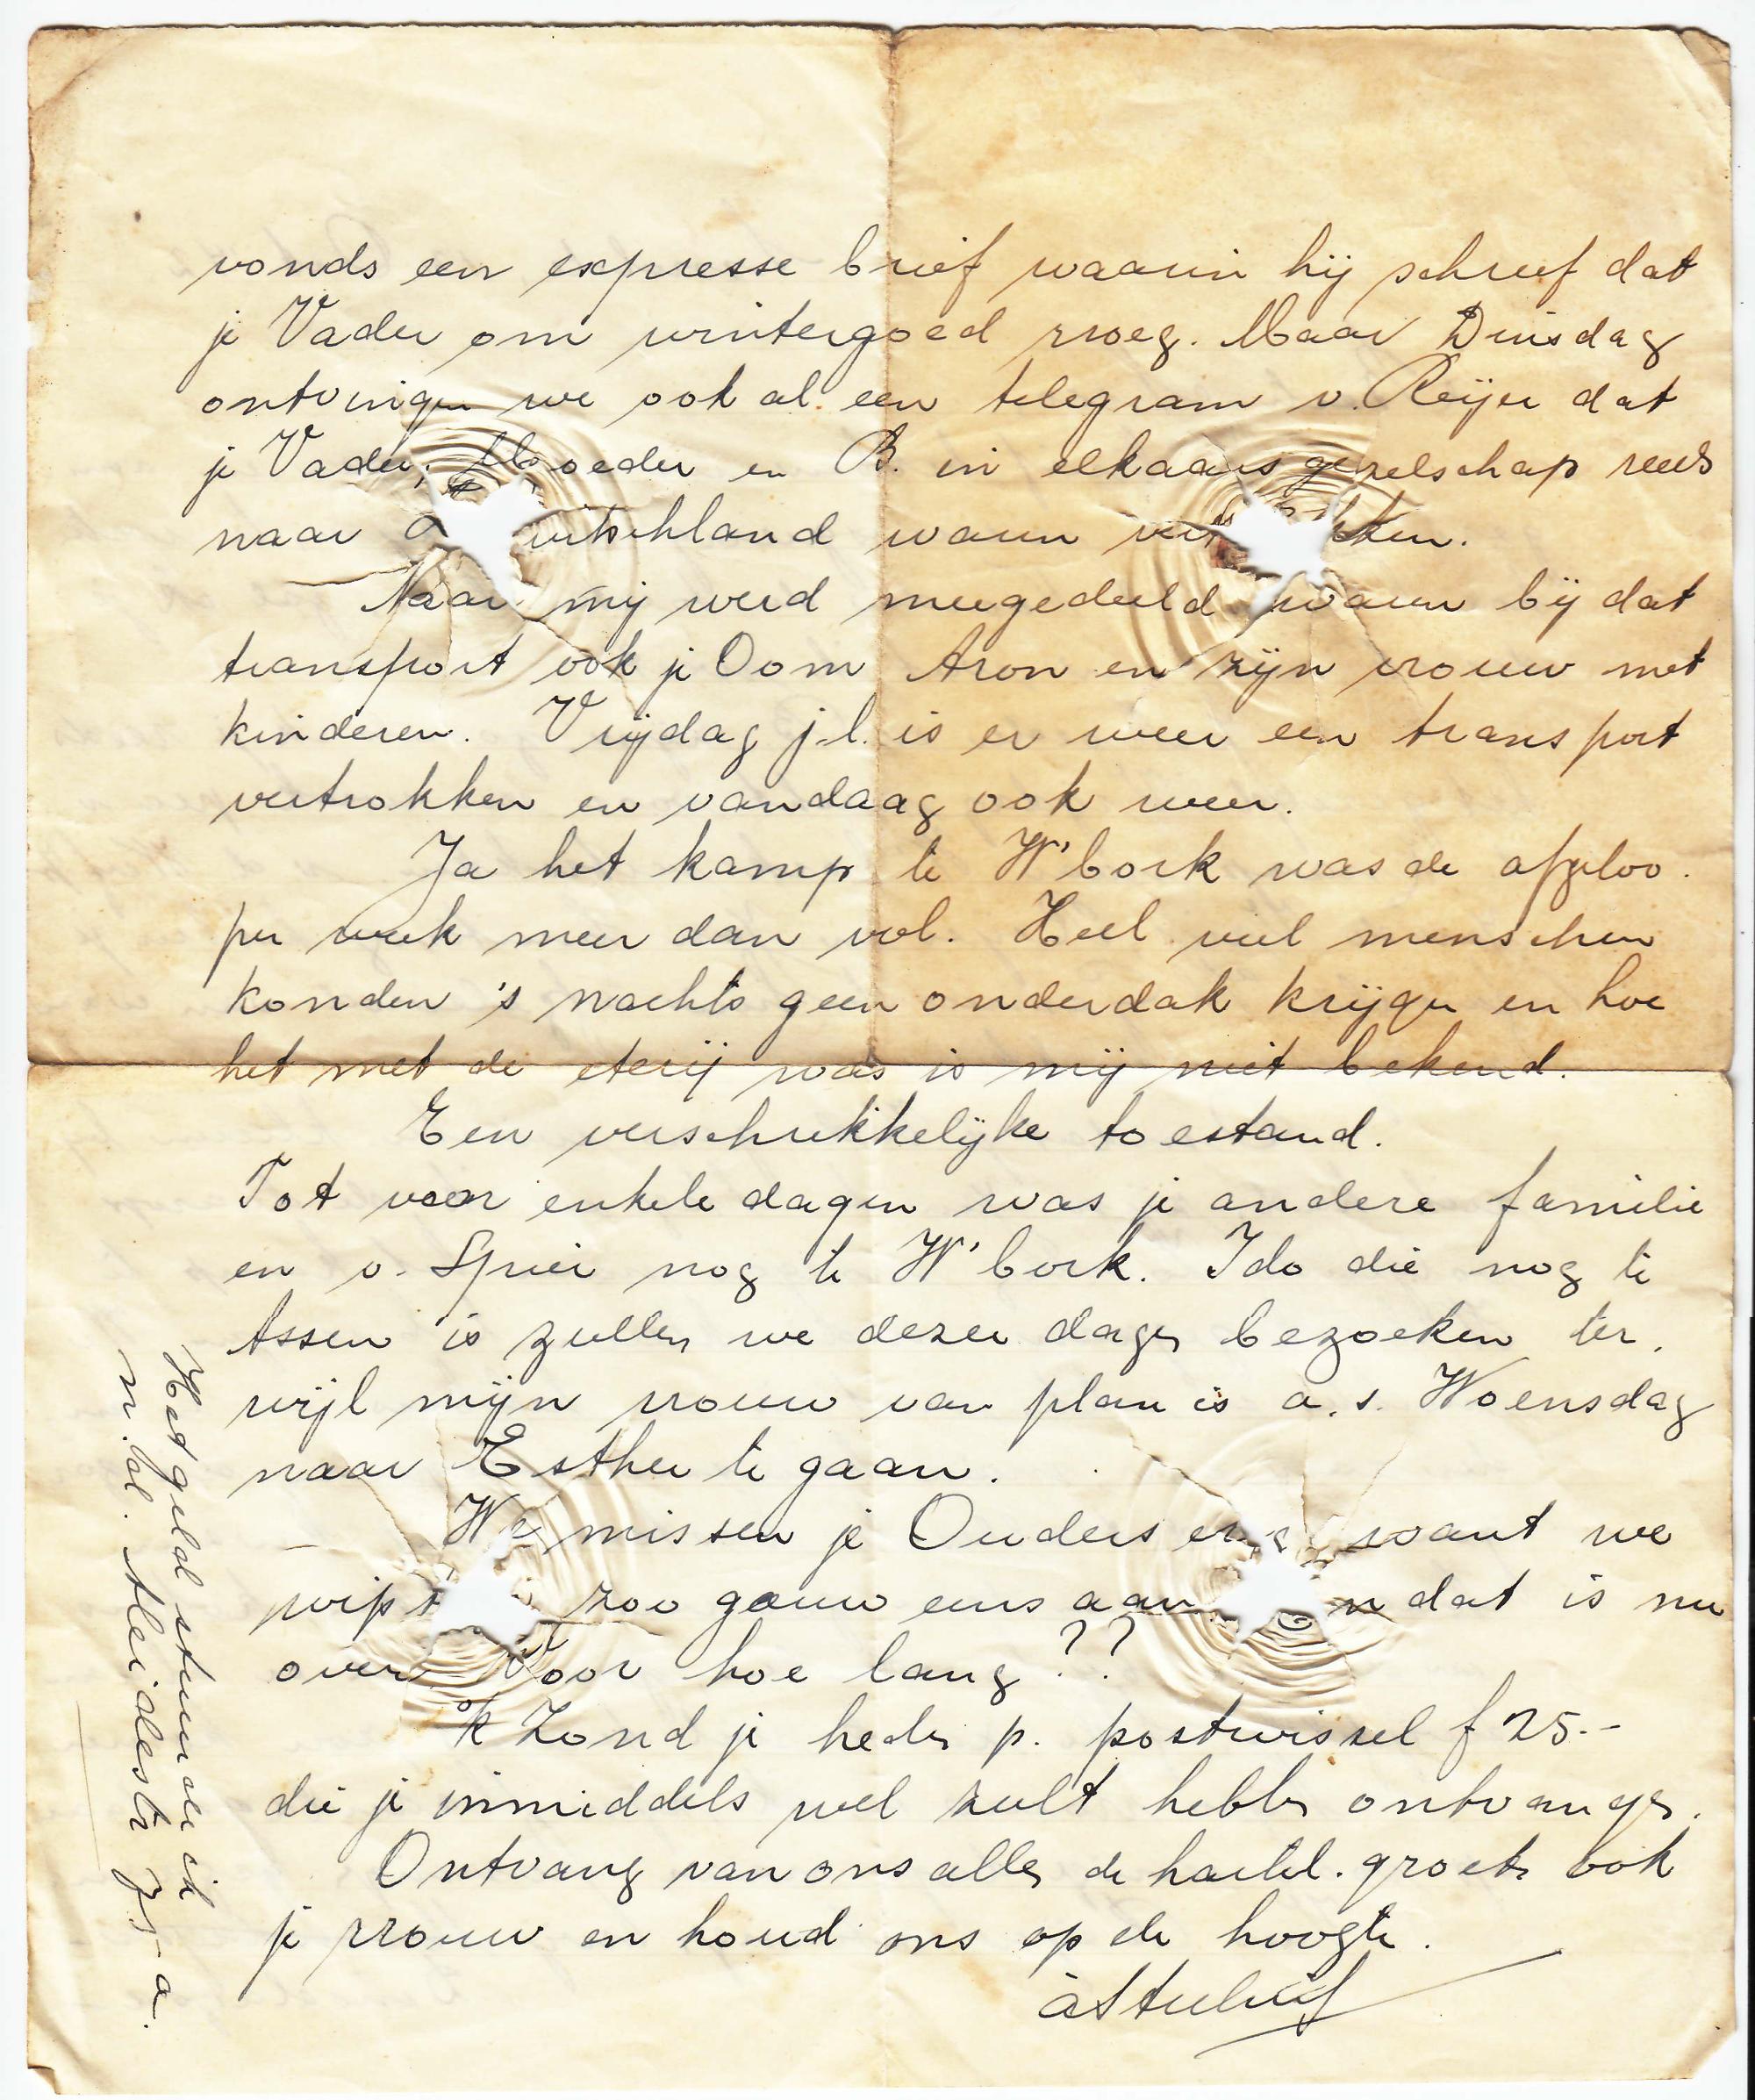 vonds een expresse brief waarin hij schreef dat
je Vader om wintergoed vroeg. Maar Dinsdag
ontvingen we ook al een telegram v. Reijer dat
je Vader, Moeder en B. in elkaars gezelschap reeds
naar D uitschland waren ver kken.
Naar mij werd meegedeeld waren bij dat
transport ook je Oom Aron en zijn vrouw met
kinderen. Vrijdag j.l. is er weer een transport
vertrokken en vandaag ook weer.
Ja het kamp te W'bork was de afgeloo-
pen week meer dan vol. Heel veel menschen
konden 's nachts geen onderdak krijgen en hoe
het met de eterij was is mij niet bekend.
Een verschrikkelijke toestand.
Tot voor enkele dagen was je andere familie
en v. Spier nog te W'bork. Ido die nog te
Assen is zullen we dezer dagen bezoeken ter-
wijl mijn vrouw van plan is a.s. Woensdag
naar Esther te gaan.
We missen je Ouders erg want we
wipt zoo gauw eens aan n dat is nu
over Voor hoe lang??
'k Zond je heden p. postwissel f 25.-
die je inmiddels wel zult hebben ontvangen.
Ontvang van ons allen de hartel. groeten ook
je vrouw en houd ons op de hoogte.
Het geld stuurde ik
n. ad.